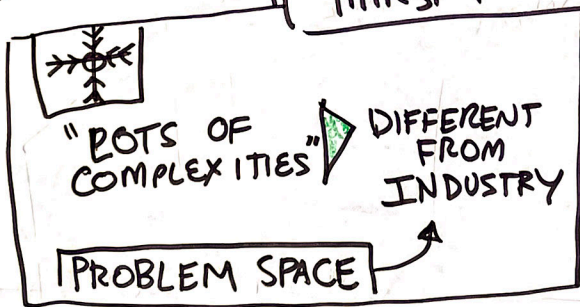 "LOTS OF
COMPLEXITIES"
DIFFERENT
FROM
INDUSTRY
PROBLEM SPACE